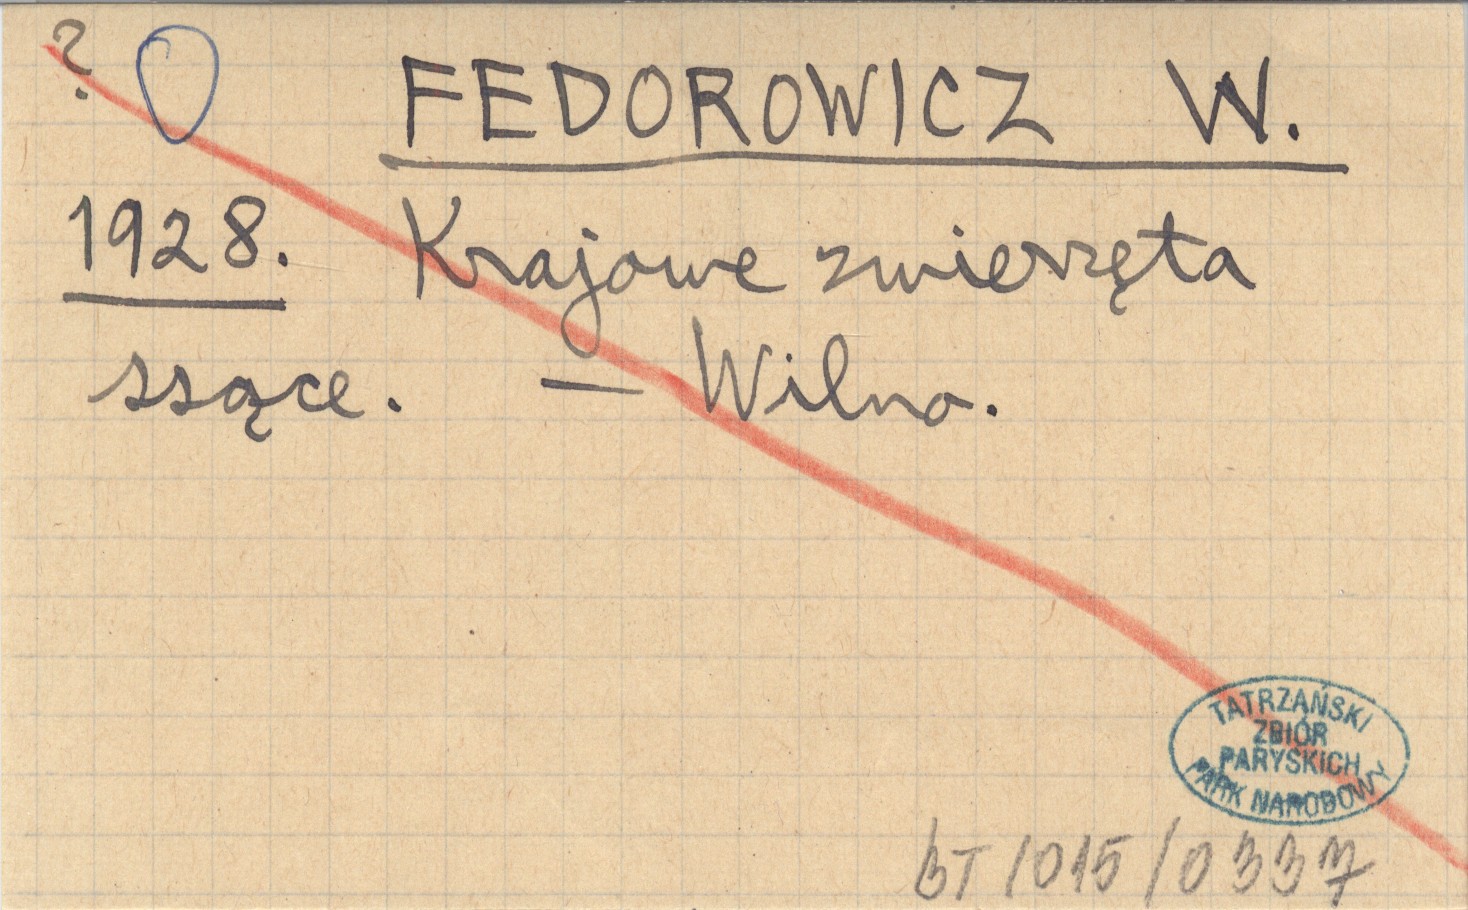 ?
FEDOROWICZ W.
1928. Krajowe zwierzęta
ssące. — Wilno.
TATRZAŃSKI
ZBIÓR
PARYSKICH
PARK NARODOWY
BT/015/0337